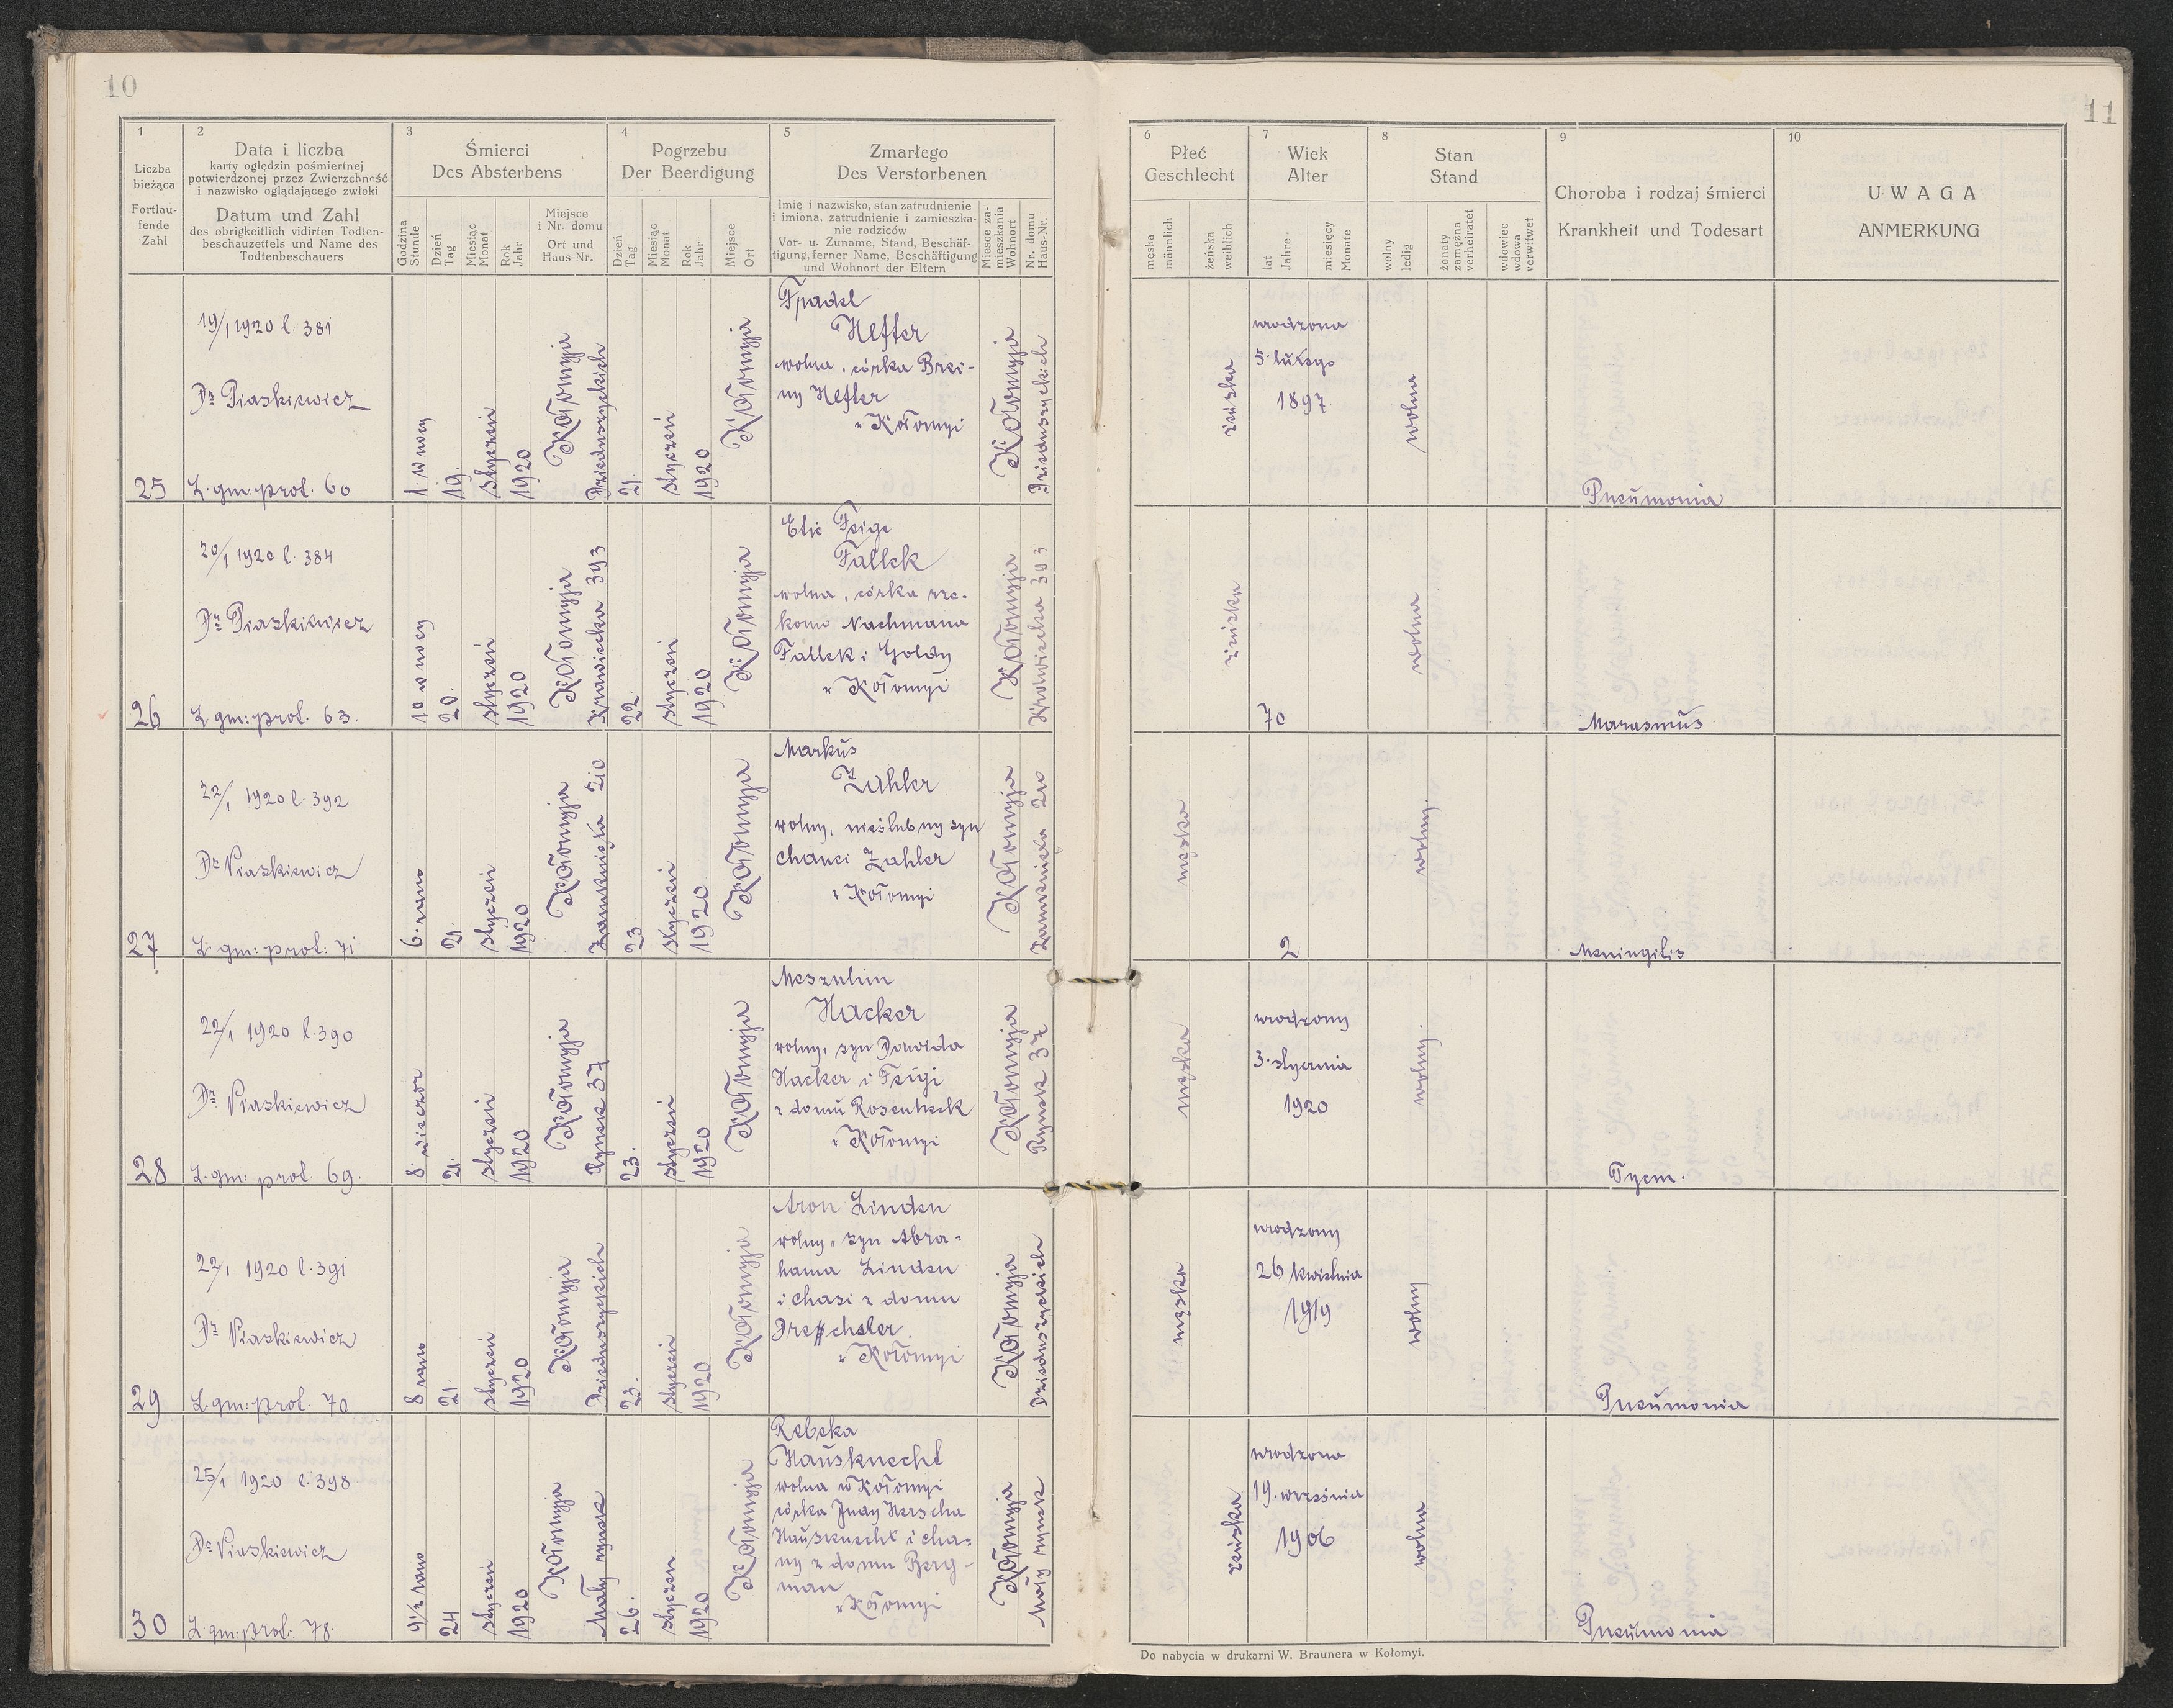 10
11
1
Liczba
bieżąca
Fortlau-
fende
Zahl
2
Data i liczba
karty oględzin pośmiertnej
potwierdzonej przez Zwierzchność
i nazwisko oglądającego zwłoki
Datum und Zahl
des obrigkeitlich vidirten Todten-
beschauzettels und Name des
Todtenbeschauers
3
Śmierci
Des Absterbens
Godzina
Stunde
Dzień
Tag
Miesiąc
Monat
Rok
Jahr
Miejsce
i Nr. domu
Ort und
Haus-Nr.
4
Pogrzebu
Der Beerdigung
Dzień
Tag
Miesiąc
Monat
Rok
Jahr
Miejsce
Ort
5
Zmarłego
Des Verstorbenen
Imię i nazwisko, stan zatrudnienie
i imiona, zatrudnienie i zamieszka-
nie rodziców
Vor- u. Zuname, Stand, Beschäf-
tigung, ferner Name, Beschäftigung
und Wohnort der Eltern
Miesce za-
mieszkania
Wohnort
Nr. domu
Haus-Nr.
6
Płeć
Geschlecht
męska
männlich
żeńska
weiblich
7
Wiek
Alter
lat
Jahre
miesięcy
Monate
8
Stan
Stand
wolny
ledig
żonaty
zamężna
verheiratet
wdowiec
wdowa
verwitwet
9
Choroba i rodzaj śmierci
Krankheit und Todesart
10
UWAGA
ANMERKUNG
25
19/1 1920 l. 381
Dr Piaskiewicz
L. gm. prot. 60
1. w nocy
19.
styczeń
1920
Kołomyja
Dzieduszyckich
21.
styczeń
1920
Kołomyja
Fradel
Hefter
wolna, córka Brei-
ny Hefter
w Kołomyi
Kołomyja
Dzieduszyckich
żeńska
urodzona
5. lutego
1897
wolna
Pneumonia
26
20/1 1920 l. 384
Dr Piaskiewicz
L. gm: prot. 63.
10 w nocy
20.
styczeń
1920
Kołomyja
Krawiecka 393
22.
styczeń
1920
Kołomyja
Etie Feige
Fallek
wolna, córka rze-
komo Nachmana
Fallek i Goldy
w Kołomyi
Kołomyja
Krawiecka 393
żeńska
70
wolna
Marasmus.
27
22/1 1920 l. 392
Dr Piaskiewicz
L: gm: prot: 71
6. rano
21.
styczeń
1920
Kołomyja
Zamknięta 210
23.
styczeń
1920
Kołomyja
Markus
Zahler
wolny, nieślubny syn
Chanci Zahler
w Kołomyi
Kołomyja
Zamknięta 210
męska
2
wolny.
Meningitis
28
22/1 1920 l. 390
Dr Piaskiewicz
L. gm: prot. 69.
8. wieczor
21.
styczeń
1920
Kołomyja
Rynek 37
23.
styczeń
1920
Kołomyja
Meszulim
Hacker
wolny, syn Dawida
Hacker i Feigi
z domu Rosenheck
w Kołomyi
Kołomyja
Rynek 37
męska
urodzony
3. stycznia
1920
wolny.
29
22/1 1920 l. 391
Dr Piaskiewicz
L. gm: prot. 70
8 rano
21.
styczeń
1920
Kołomyja
Dzieduszyckich
23.
styczeń
1920
Kołomyja
Aron Linden
wolny, syn Abra-
hama Linden
i Chasi z domu
w Kołomyi
Kołomyja
Dzieduszyckich
męska
urodzony
26 kwietnia
1919
wolny
Pneumonia
30
25/1 1920 l. 398
Dr Piaskiewicz
L. gm: prot: 78.
9 1/2 rano
24
styczeń
1920
Kołomyja
Mały rynek
26.
styczeń
1920
Kołomyja
Rebeka
Hausknecht
wolna w Kołomyi
córka Judy Herscha
Hausknecht i Cha-
ny z domu Berg-
man
w Kołomyi
Kołomyja
Mały rynek
żeńska
urodzona
19. września
1906
wolna
Pneumonia
Do nabycia w drukarni W. Braunera w Kołomyi.